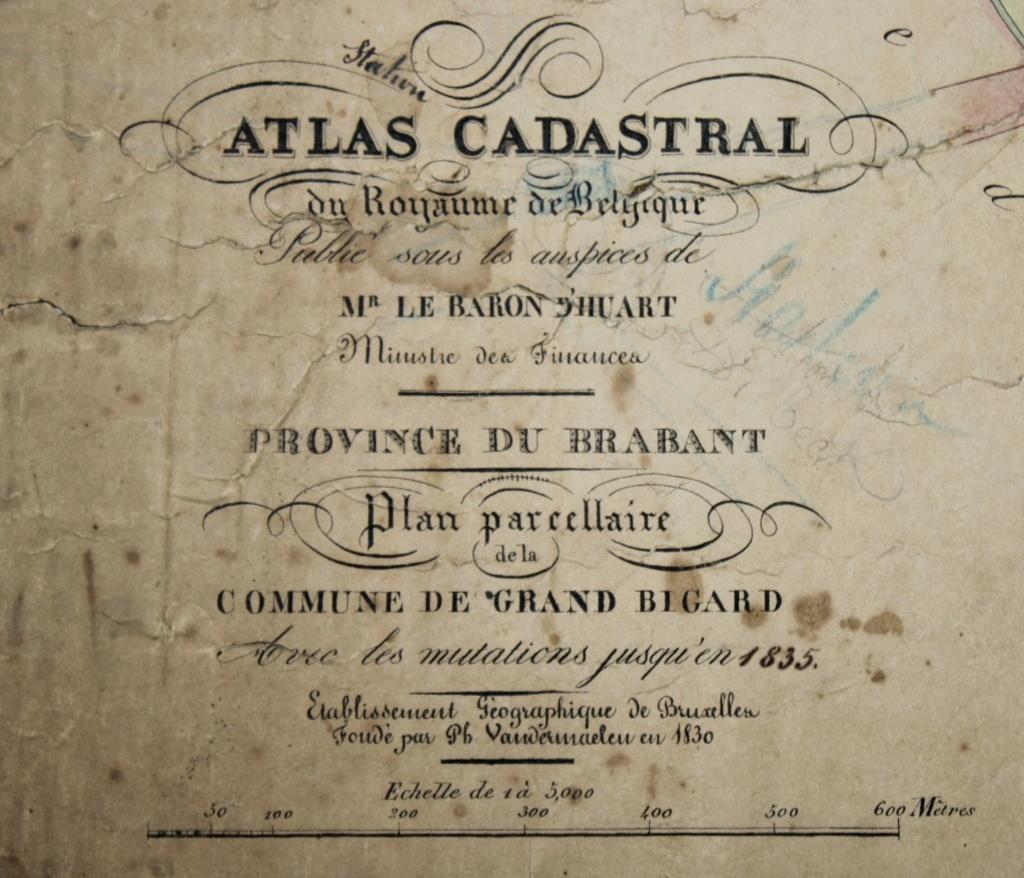 Station
e
ATLAS CADASTRAL
du Royaume de Belgique
Publié sous les auspices de
Mr LE BARON D'HUART
Ministre des Finances
PROVINCE DU BRABANT
Plan parcellaire
de la
COMMUNE DE GRAND BIGARD
Avec les mutations jusqu'en 1835.
Etablissement Géographique de Bruxelles
Fondé par Ph. Vandermaelen en 1830
Echelle de 1 à 5,000
50 100 200 300 400 500 600 Mètres